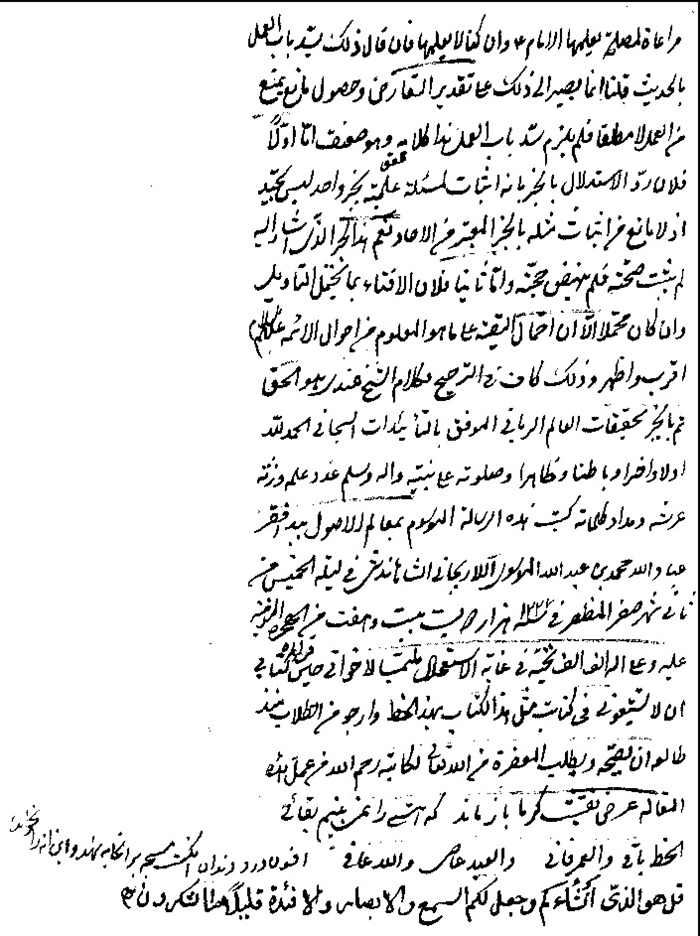 مراعاة لمصلحة يعلمها الامام ع وان كنا لا نعلمها فان قال ذلك يسد باب العمل
بالحديث قلنا انما يصير الى ذلك على تقدير التعارض وحصول مانع يمنع
من العمل لا مطلقا فلم يلزم سد باب العمل هذا كلامه وهو ضعيف اما اولا
فلان رد الاستدلال بالخبر بانه اثبات لمسئلة علمية بخبر واحد ليس بجيد
اذ لا مانع من اثبات مثله بالخبر المعتبر من الاحاد نعم هذا الخبر الذى اشار اليه
لم يثبت صحته فلم ينهض حجته واما ثانيا فلان الافتاء بما يحتمل التاويل
وان كان محتملا الا ان احتمال التقية على ما هو المعلوم من احوال الائمة عليهم السلام
اقرب واظهر وذلك كاف فى الترجيح فكلام الشيخ عندى هو الحق
تم بالخير تحقيقات العالم الربانى الموفق بالتأييدات السبحانى الحمد لله
اولا واخرا وباطنا وظاهرا وصلوته على نبيه واله وسلم عدد علمه وزنة
عرشه ومداد كلماته كتبت هذه الرسالة الموسوم بمعالم الاصول بيد افقر
عباد الله محمد بن عبد الله الموسوى اللاريجانى الشاهاندشتى فى ليلة الخميس من
ثانى شهر صفر المظفر فى سنة ١٢٢٧ هزار دويست بيست وهفت من الهجرة
عليه وعلى اله الف الف تحية فى غاية الاستعجال ملتمسا لاخوانى حين
ان لا تشيعونى فى كتابت مثل هذا الكتاب بهذا الخط وارجو من الطلاب
طالعوا ان يصححه ويطلب المغفرة من الله تعالى لكاتبه رحم الله من عمل بهذه
المقالة غرض نقشيست كزما باز ماند كه هستى را نمى بينم بقائى
الخط باقى والعمر فانى والعبد عاصى والله عافى افسون درد دندان
قل هو الذى انشأكم وجعل لكم السمع والابصار والافئدة قليلا ما تشكرون